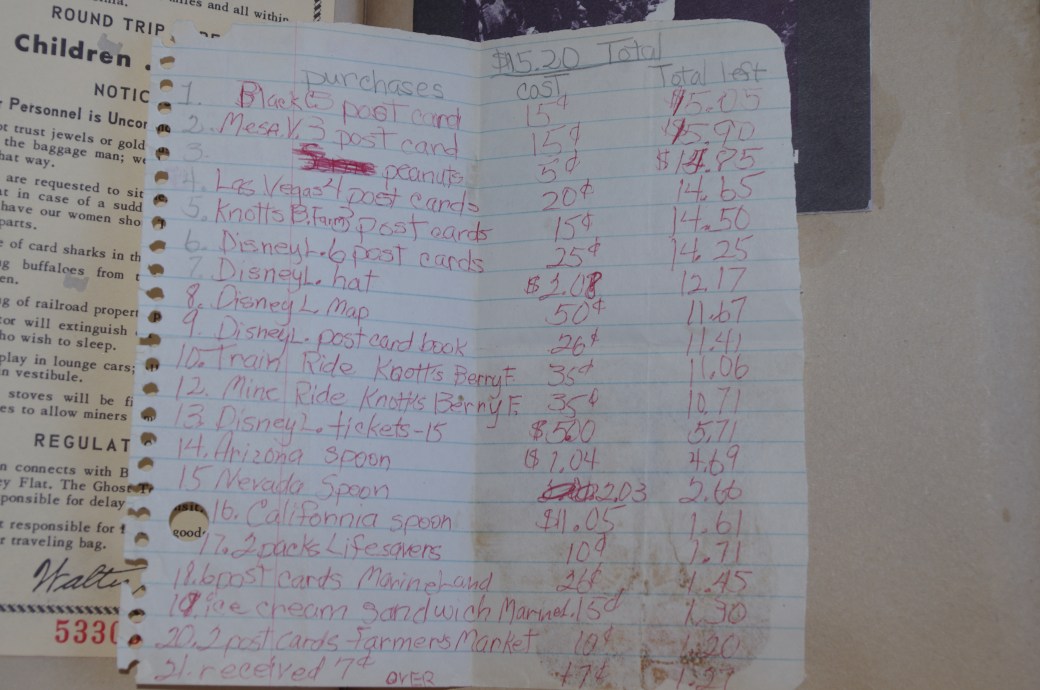 ROUND TRIP
Children .
NOTIC
Personnel is Uncor
ot trust jewels or gold
the baggage man; we
hat way.
are requested to sit
at in case of a sudd
have our women sho
parts.
e of card sharks in th
ng buffaloes from t
en.
ng of railroad propert
tor will extinguish
ho wish to sleep.
play in lounge cars;
n vestibule.
stoves will be fi
es to allow miners
REGULAT
n connects with B
ey Flat. The Ghost Tr
ponsible for delay
good
t responsible for f
r traveling bag.
Walte
533
$15.20 Total
purchases cost Total left
1. Black 3 post card 15¢ 15.05
2. Mesa V. 3 post card 15¢ 15.90
3. peanuts 5¢ $14.85
4. Las Vegas 4 post cards 20¢ 14.65
5. Knotts B. Farm 3 post cards 15¢ 14.50
6. Disney L. 6 post cards 25¢ 14.25
7. Disney L. hat $2.08 12.17
8. Disney L. Map 50¢ 11.67
9. Disney L. post card book 26¢ 11.41
10. Train Ride Knott's Berry F. 35¢ 11.06
12. Mine Ride Knott's Berry F. 35¢ 10.71
13. Disney L. tickets-15 $5.00 5.71
14. Arizona spoon $1.04 4.69
15 Nevada Spoon 2.03 2.66
16. California spoon $1.05 1.61
17. 2 packs Lifesavers 10¢ 1.71
18. 6 post cards Marineland 26¢ 1.45
19. ice cream sandwich Marinel. 15¢ 1.30
20. 2 post cards Farmers Market 10¢ 1.20
21. received 7¢ +7¢ 1.27
OVER